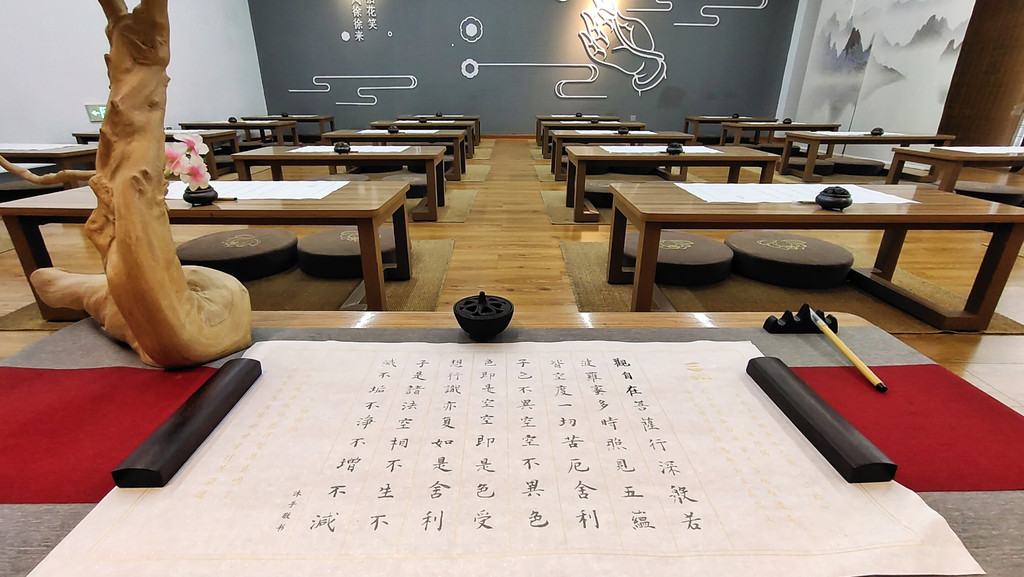 花笑
徐徐来
觀自在菩薩行深般若
波羅蜜多時照見五蘊
皆空度一切苦厄舍利
子色不異空空不異色
色即是空空即是色受
想行識亦复如是舍利
子是諸法空相不生不
滅不垢不淨不增不減
沐手敬书